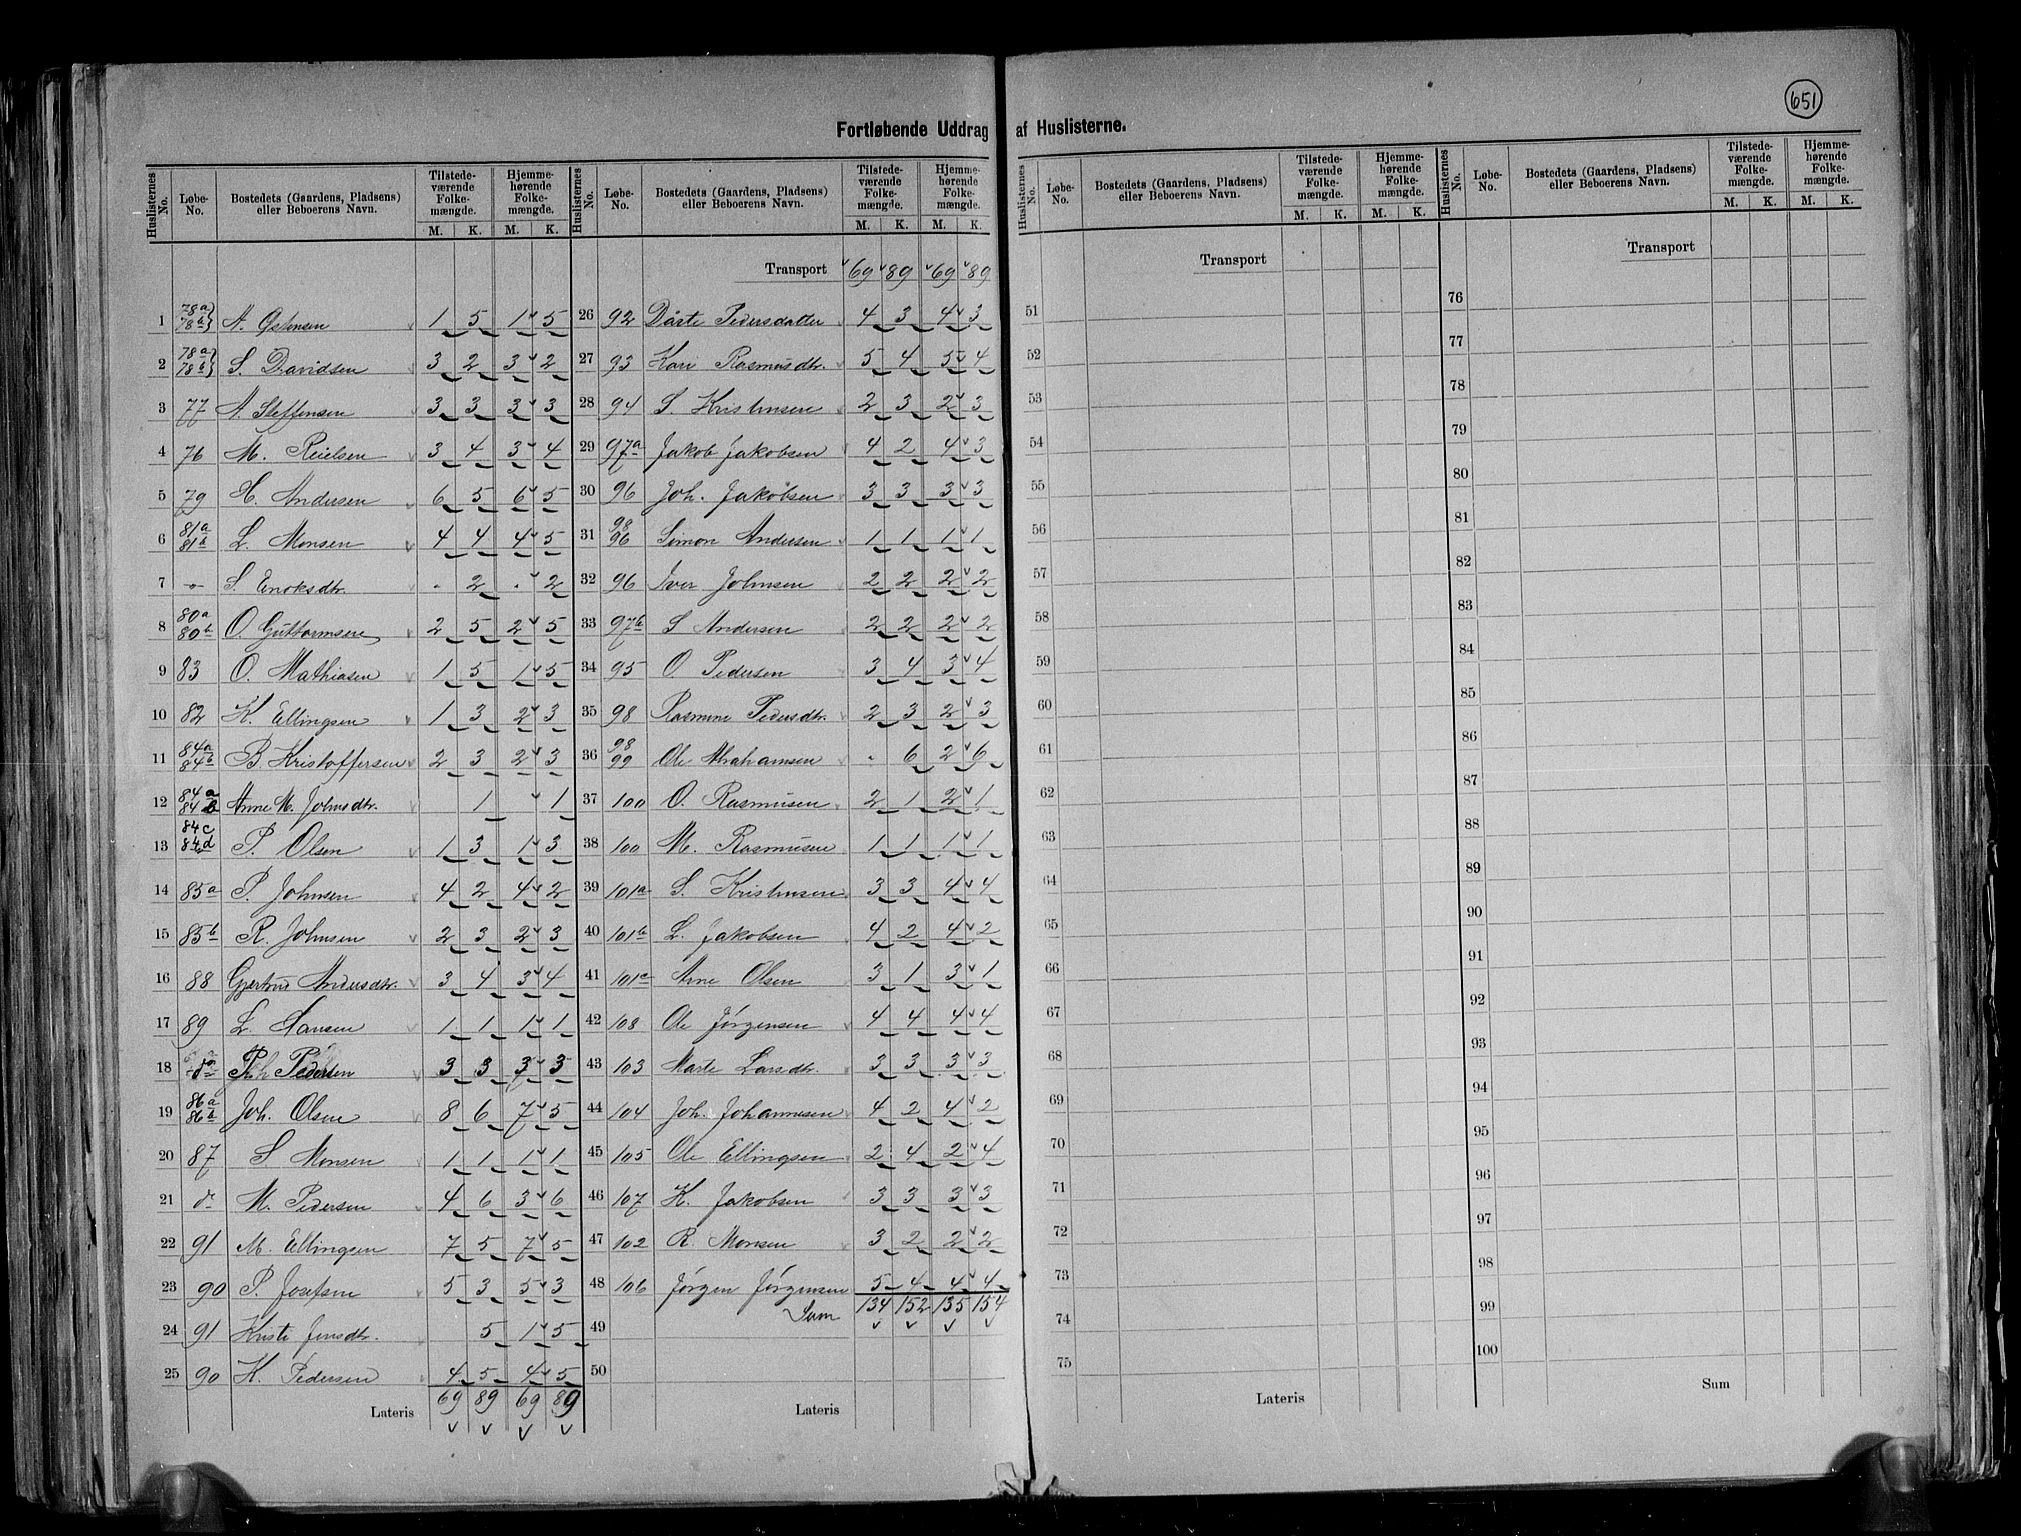 651
Fortløbende Uddrag af Huslisterne.
Huslisternes No. Løbe-No. Bostedets (Gaardens, Pladsens) eller Beboerens Navn. Tilstedeværende Folkemængde. M. K. Hjemmehørende Folkemængde. M. K.
1 78a 78b} A. Ostensen 1 5 1 5
2 78a 78b} S. Davidsen 3 2 3 2
3 77 A. Steffensen 3 3 3 3
4 76 M. Reielsen 3 4 3 4
5 79 H. Andersen 6 5 6 5
6 81a 81b L. Monsen 4 4 4 5
7 -"- S. Enoksdtr. - 2 - 2
8 80a 80b O. Guttormsen 2 5 2 5
9 83 O. Mathiasen 1 5 1 5
10 82 K. Ellingsen 1 3 2 3
11 84a 84b B. Kristoffersen 2 3 2 3
12 84a 84b Anne M. Johnsdtr. 1 1
13 84c 84d P. Olsen 1 3 1 3
14 85a P. Johnsen 4 2 4 2
15 85b R. Johnsen 2 3 2 3
16 88 Gjertrud Andersdtr. 3 4 3 4
17 89 L. Hansen 1 1 1 1
18 do Pedersen 3 3 3 3
19 86a 86b Joh. Olsen 8 6 7 5
20 87 S Monsen 1 1 1 1
21 do M. Pedersen 4 6 3 6
22 91 M. Ellingsen 7 5 7 5
23 90 P. Josefsen 5 3 5 3
24 91 Kristi Jensdtr. 5 1 5
25 90 K. Pedersen 4 5 4 5
Lateris 69 89 69 89
Huslisternes No. Løbe-No. Bostedets (Gaardens, Pladsens) eller Beboerens Navn. Tilstedeværende Folkemængde. M. K. Hjemmehørende Folkemængde. M. K.
Transport 69 89 69 89
26 92 Dårte Pedersdatter 4 3 4 3
27 93 Kari Rasmusdtr. 5 4 5 4
28 94 S. Kristensen 2 3 2 3
29 97a Jakob Jakobsen 4 2 4 3
30 96 Joh. Jakobsen 3 3 3 3
31 98 96 Simon Andersen 1 1 1 1
32 96 Iver Johnsen 2 2 2 2
33 97b S Andersen 2 2 2 2
34 95 O. Pedersen 3 4 3 4
35 98 Rasmine Pedersdtr. 2 3 2 3
36 98 99 Ole Abrahamsen - 6 2 6
37 100 O. Rasmusen 2 1 2 1
38 100 M. Rasmusen 1 1 1 1
39 101a S. Kristensen 3 3 4 4
40 101b L. Jakobsen 4 2 4 2
41 101c Arne Olsen 3 1 3 1
42 108 Ole Jørgensen 4 4 4 4
43 103 Marte Larsdtr. 3 3 3 3
44 104 Joh. Johannesen 4 2 4 2
45 105 Ole Ellingsen 2 4 2 4
46 107 K. Jakobsen 3 3 3 3
47 102 R. Monsen 3 2 2 2
48 106 Jørgen Jørgensen 5 4 4 4
49 Sum 134 152 135 154
50
Lateris
Huslisternes No. Løbe-No. Bostedets (Gaardens, Pladsens) eller Beboerens Navn. Tilstedeværende Folkemængde. M. K. Hjemmehørende Folkemængde. M. K.
Transport
51
52
53
54
55
56
57
58
59
60
61
62
63
64
65
66
67
68
69
70
71
72
73
74
75
Lateris
Huslisternes No. Løbe-No. Bostedets (Gaardens, Pladsens) eller Beboerens Navn. Tilstedeværende Folkemængde. M. K. Hjemmehørende Folkemængde. M. K.
Transport
76
77
78
79
80
81
82
83
84
85
86
87
88
89
90
91
92
93
94
95
96
97
98
99
100
Sum